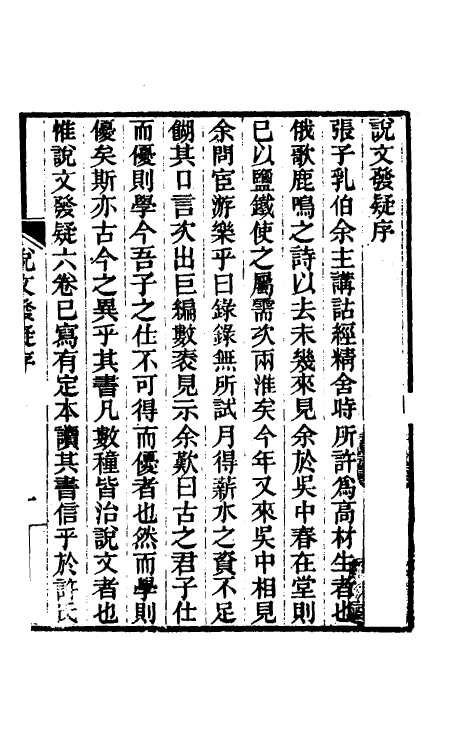 說文發疑序
張子乳伯余主講詁經精舍時所許爲高材生者也
俄歌鹿鳴之詩以去未幾來見余於吳中春在堂則
已以鹽鐵使之屬需次兩淮矣今年又來吳中相見
余問宦游樂乎曰錄錄無所試月得薪水之資不足
餬其口言次出巨編數袠見示余歎曰古之君子仕
而優則學今吾子之仕不可得而優者也然而學則
優矣斯亦古今之異乎其書凡數種皆治說文者也
惟說文發疑六卷已寫有定本讀其書信乎於許氏
說文發疑序
一